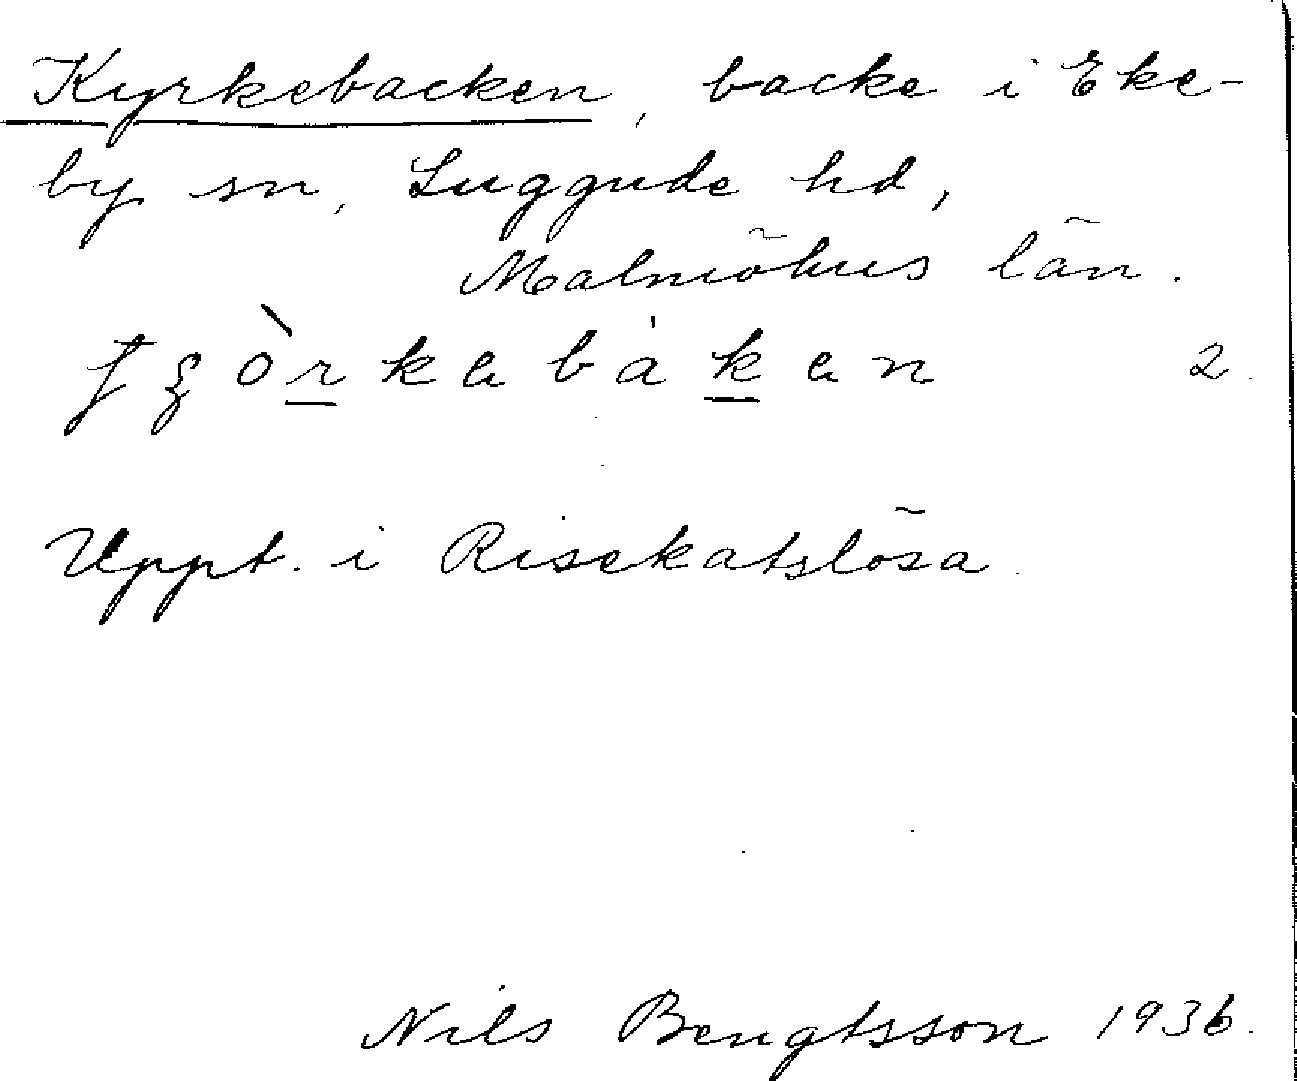 Kyrkebacken, backe i Eke-
by sn, Luggude hd,
Malmöhus län.
fʒòrkabàkan 2.
Uppt. i Risekatslösa
Nils Bengtsson 1936.